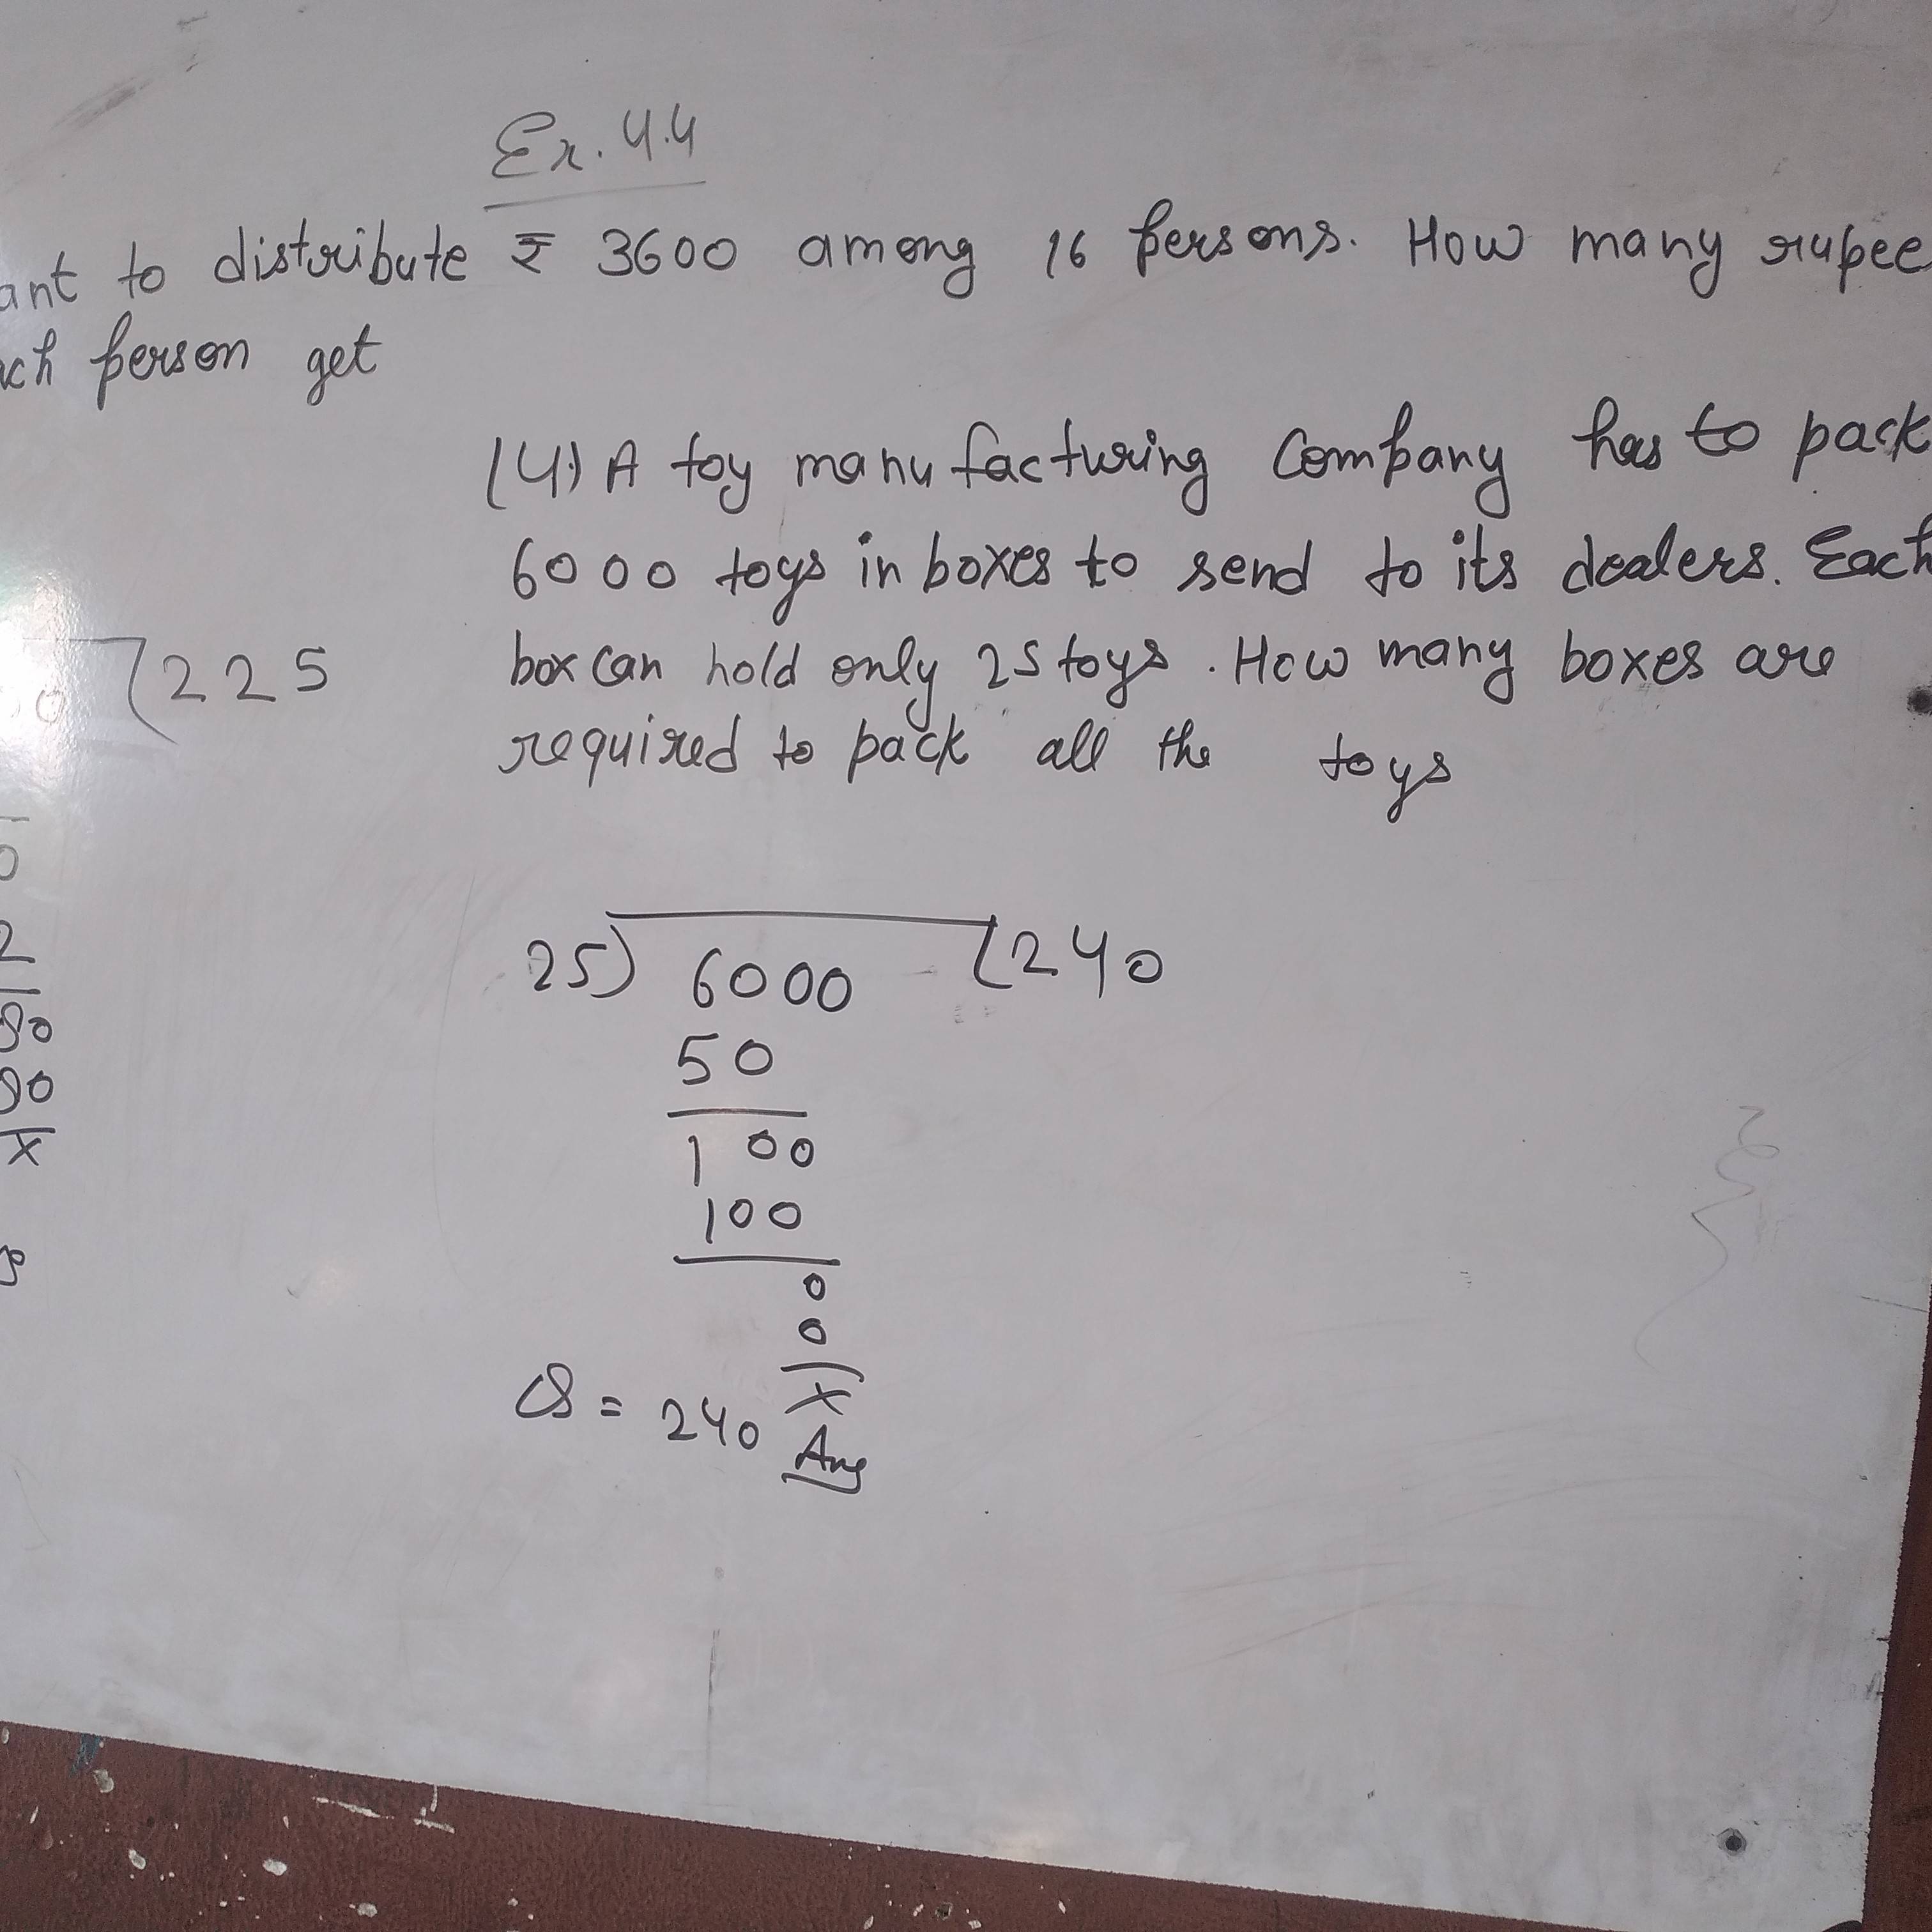 Ex. 4.4
ant to distribute ₹ 3600 among 16 persons. How many rupee
ch person get
(4) A toy manufacturing Company has to pack
6000 toys in boxes to send to its dealers. Each
box can hold only 25 toys. How many boxes are
required to pack all the toys
225
0
2
80
80
x
25) 6000 (240
50
100
100
0
0
x
Q = 240 Ans